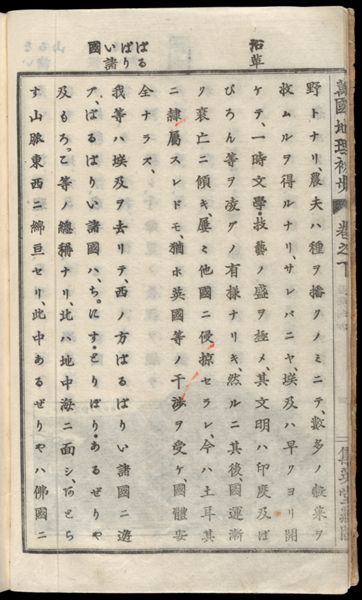 沿革
ばるばりい諸國
野トナリ農夫ハ種ヲ播クノミニテ、數多ノ收果ヲ
收ムルヲ得ルナリ、サレバニヤ、埃及ハ早クヨリ開
ケテ、一時文學、技藝ノ盛ヲ極メ、其文明ハ印度及ば
びろん等ヲ凌グノ有樣ナリキ、然ルニ其後、國運漸
ク衰亡ニ傾キ、屢〻他國ニ侵掠セラレ、今ハ土耳其
ニ隷屬スレドモ、猶ホ英國等ノ干渉ヲ受ケ、國體安
全ナラズ、
我等ハ埃及ヲ去リテ、西ノ方ばるばりい諸國ニ遊
ブ、ばるばりい諸國ハ、ちにす、とりぽり、あるぜりや
及もろっこ等ノ總稱ナリ、北ハ地中海ニ面シ、あとら
す山脈東西ニ綿亘セリ、此中あるぜりやハ佛國ニ
萬國地理初歩 卷之下
集英堂藏版